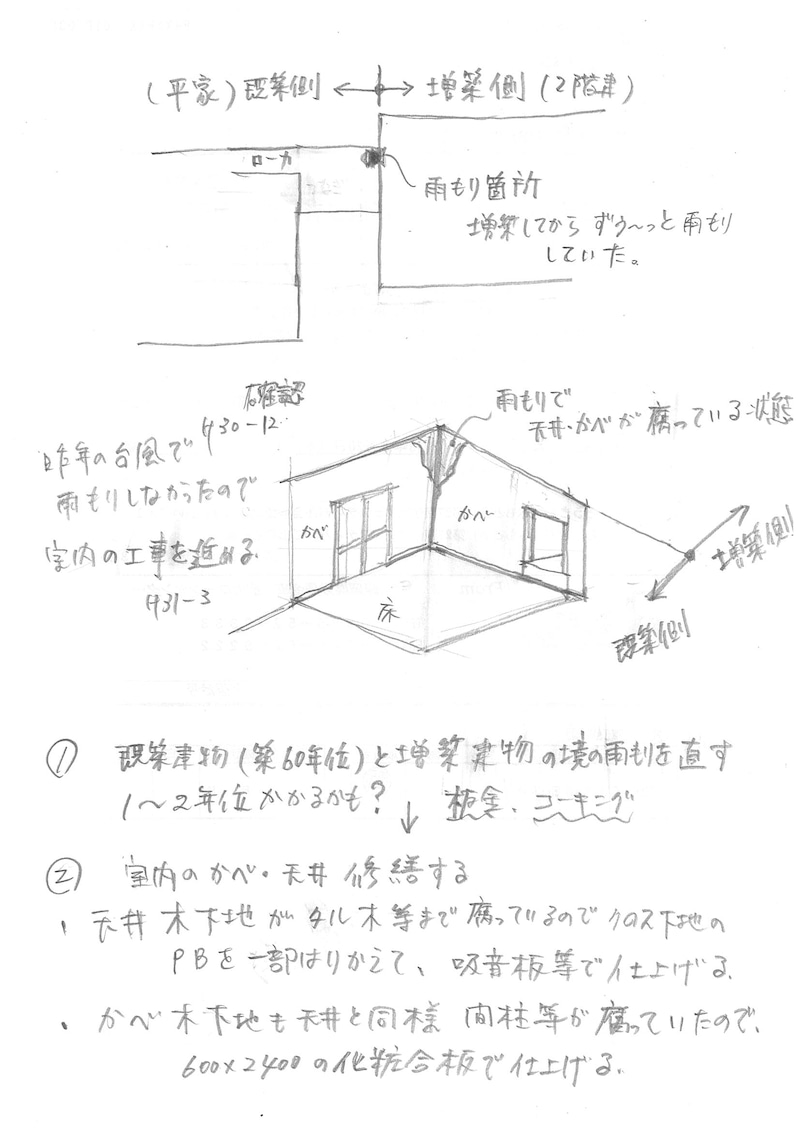 (平家) 既築側 ←→ 増築側 (2階建)
ローカ
雨もり箇所
増築してから ずぅ〜っと雨もり
していた。
確認
H30-12
昨年の台風で
雨もりしなかったので
室内の工事を進める。
H31-3
雨もりで
天井・かべが腐っている状態
かべ
かべ
床
増築側
既築側
① 既築建物(築60年位)と増築建物の境の雨もりを直す
1〜2年位かかるかも? ↓ 板金、コーキング
② 室内のかべ・天井 修繕する
・天井木下地がタル木等まで腐っているのでクロス下地の
PBを一部はりかえて、吸音板等で仕上げる。
・かべ木下地も天井と同様 間柱等が腐っていたので、
600×2400の化粧合板で仕上げる。